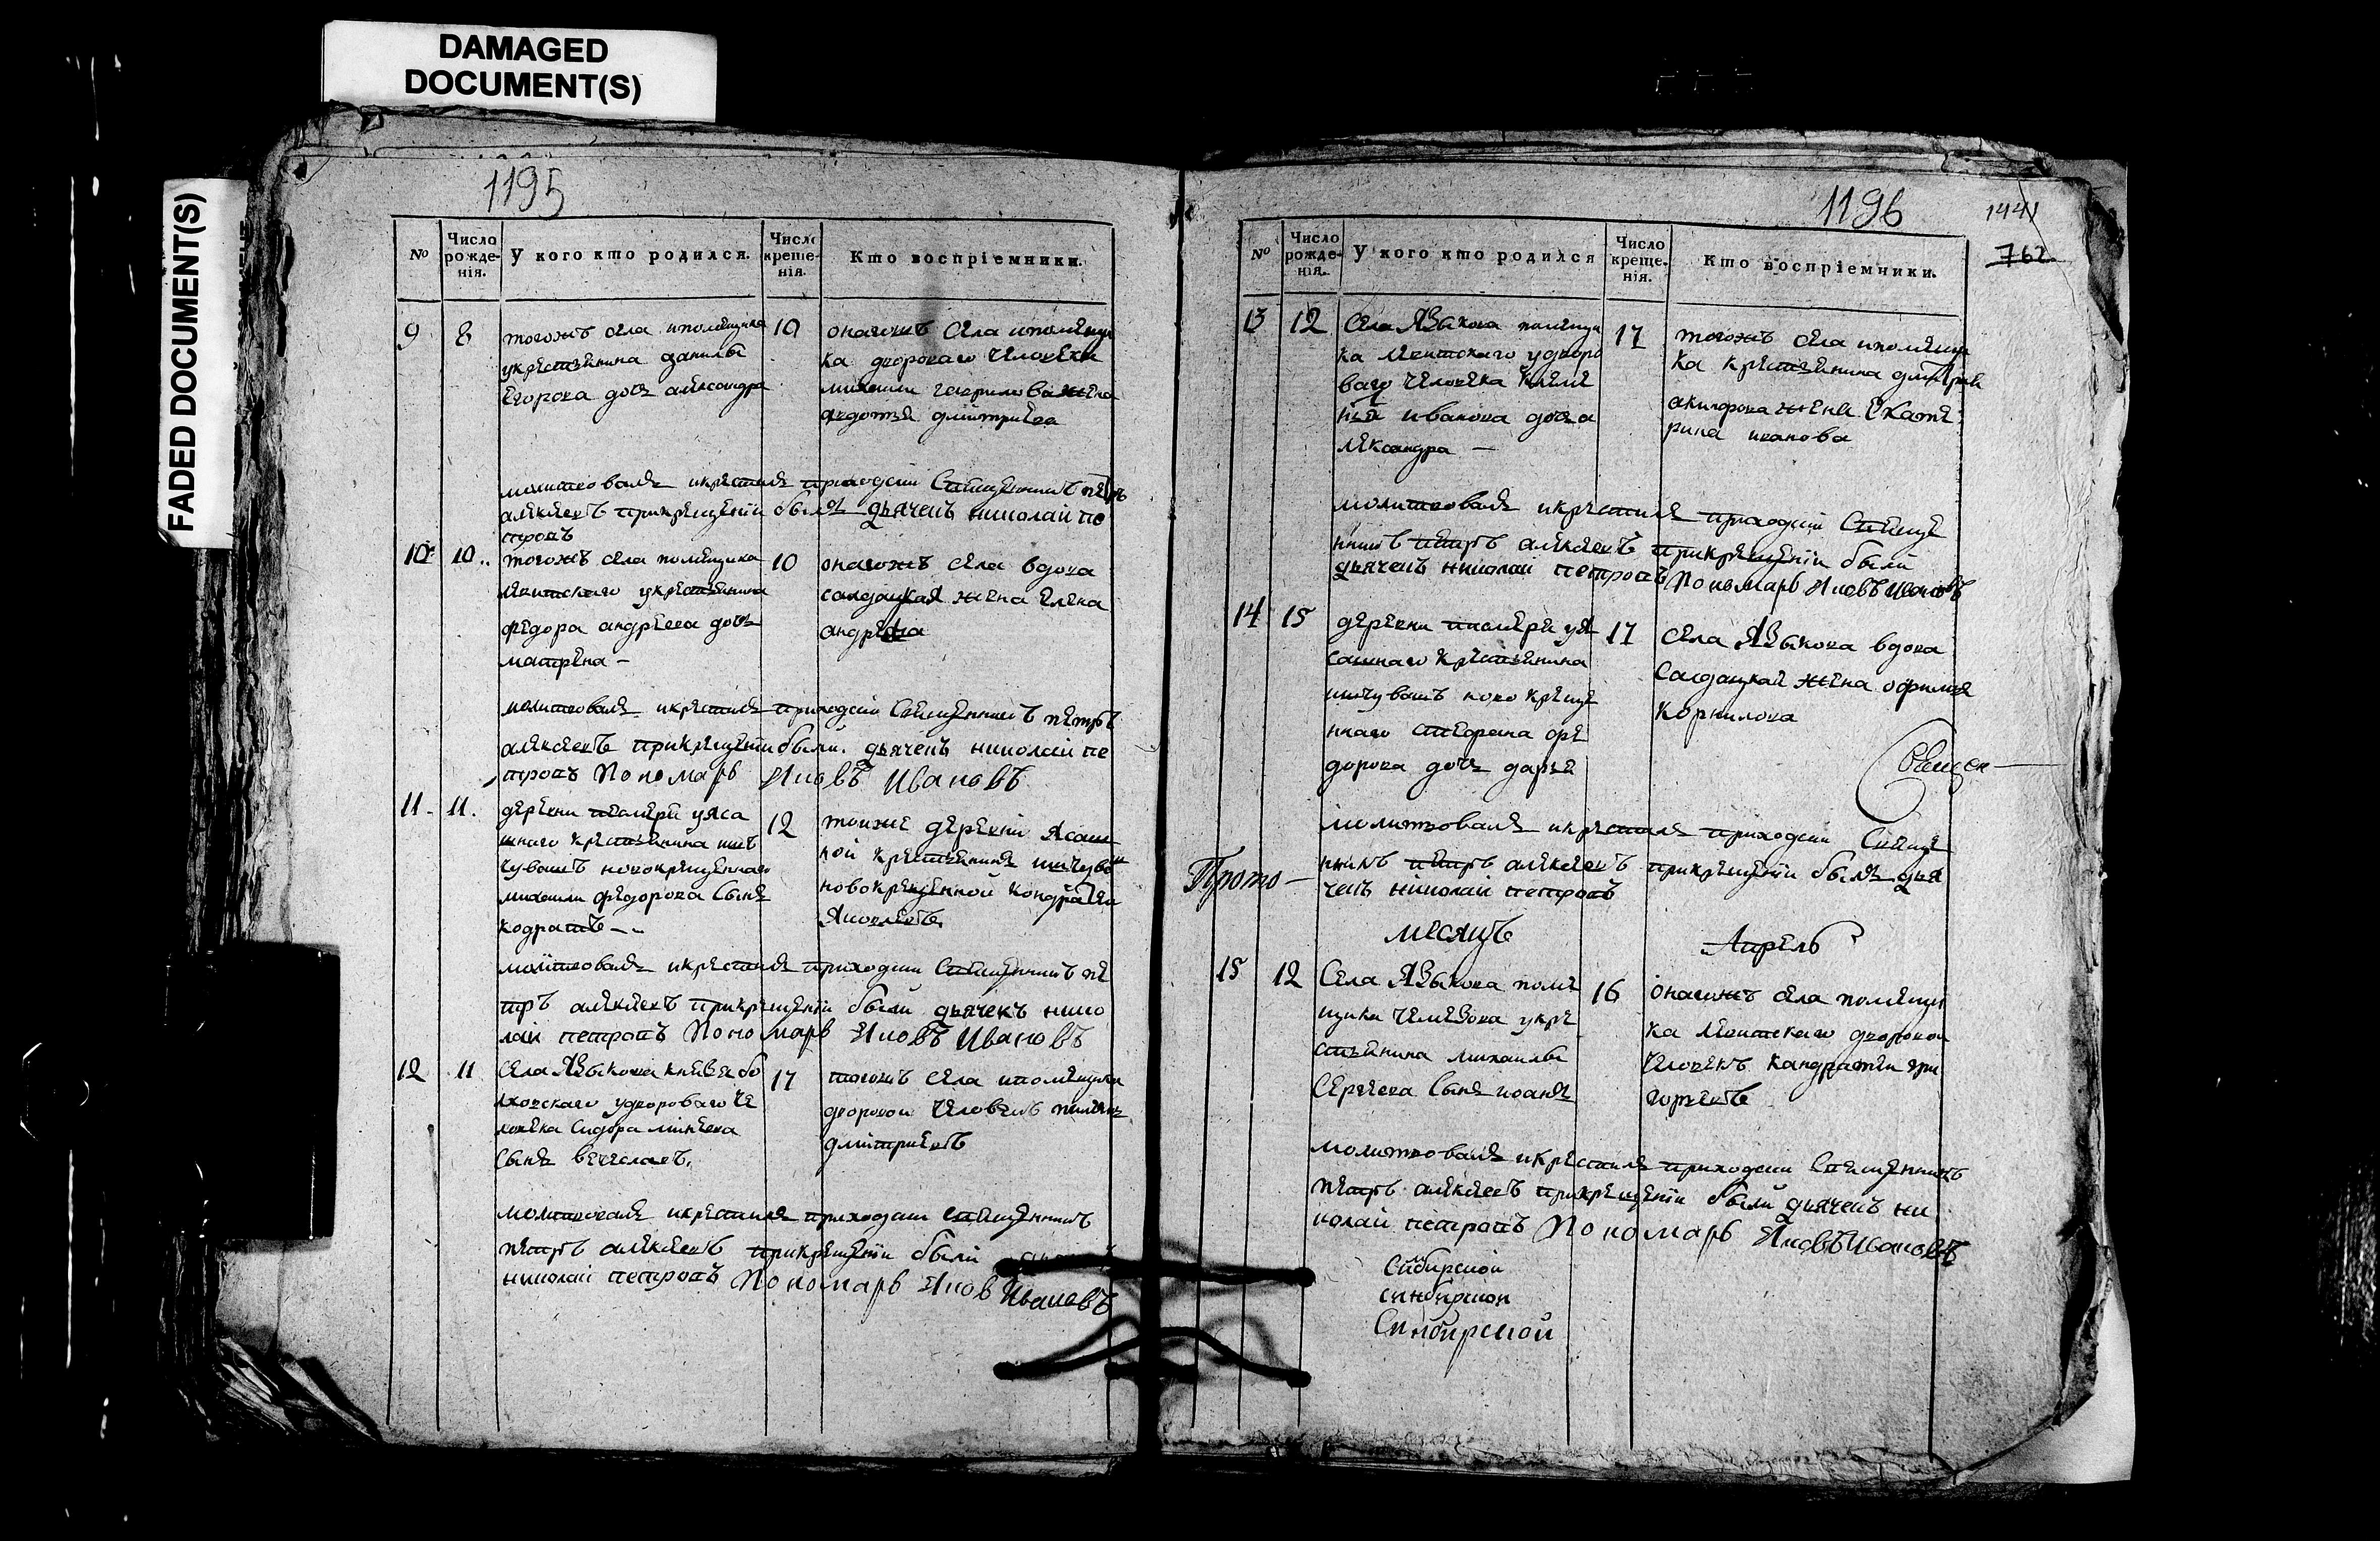 DAMAGED
DOCUMENT(S)
FADED DOCUMENT(S)
1195
№
Число рожде-нія.
У кого кто родился.
Число креще-нія.
Кто воспріемники.
9 8
тогожъ села ипомещика
укрестьянина данилы
Егорова дочь александра
10
оногожъ села ипомещи
ка дворова́го человека
михаила гаврилова жена
авдотья дмитриева
молитвовалъ икрестилъ приходски Священникъ петръ
алексеевъ прикрещении былъ дьячекъ николай пе
тровъ
10 10
тогожъ села помещика
укрестьянина
федора андреева дочь
матрена —
10
оногожъ села вдова
салдацкая жена елена
андреева
молитвовалъ икрестилъ приходски Священникъ петръ
алексеевъ прикрещении были дьячекъ николай пе
тровъ Пономарь Яковъ Ивановъ
11. 11.
деревни уяса
шнаго крестьянина изъ
чувашъ новокрещеннаго
михаила федорова сынъ
кодратъ —
12
тоиже деревни ясаш
ной крестьянинъ изчувашъ
новокрещенной кондратеи
Яковлевъ
молитвовалъ икрестилъ приходски Священникъ пе
тръ алексеевъ прикрещении были дьячекъ нико
лай петровъ Пономарь Яковъ Ивановъ
12 11
села Языкова князя бо
удвороваго че
ловека Сидора минеева
сынъ вечеславъ.
17
тогожъ села ипомещика
дворовои человекъ
дмитриевъ
молитвовалъ икрестилъ приходски священникъ
петръ алексеевъ прикрещении были
николай петровъ Пономарь Яковъ Ивановъ
1196
1441
762
№
Число рожде-нія.
У кого кто родился
Число креще-нія.
Кто воспріемники.
13 12
села Языкова помещи
ка удворо
ваго человека
иванова дочь а
лександра —
17
тогожъ села ипомещи
ка крестьянина дмитрия
акилфова жена Екате
рина иванова
молитвовалъ икрестилъ приходски Свяще
нникъ петръ алексеевъ прикрещении были
дьячекъ николай петровъ Пономарь Яковъ Ивановъ
14 15
деревни уя
сашнаго крестьянина
изчувашъ ново креще
ннаго степана фе
дорова дочь дарья
17
села Языкова вдова
салдацкая жена офимья
корнилова
Священ—
молитвовалъ икрестилъ приходски Свяще
нникъ петръ алексеевъ прикрещении былъ дья
чекъ николай петровъ
Прото—
месяцъ Апрель
15 12
села Языкова поме
щика укре
стьянина михаилы
Сергеева сынъ иоанъ
16
оногожъ села помещи
ка дворовои
человекъ кандратеи гри
горьевъ
молитвовалъ икрестилъ приходски Священникъ
петръ алексеевъ прикрещении были дьячекъ ни
колай петровъ Пономарь Яковъ Ивановъ
Симбирской
синбирской
Синбирской